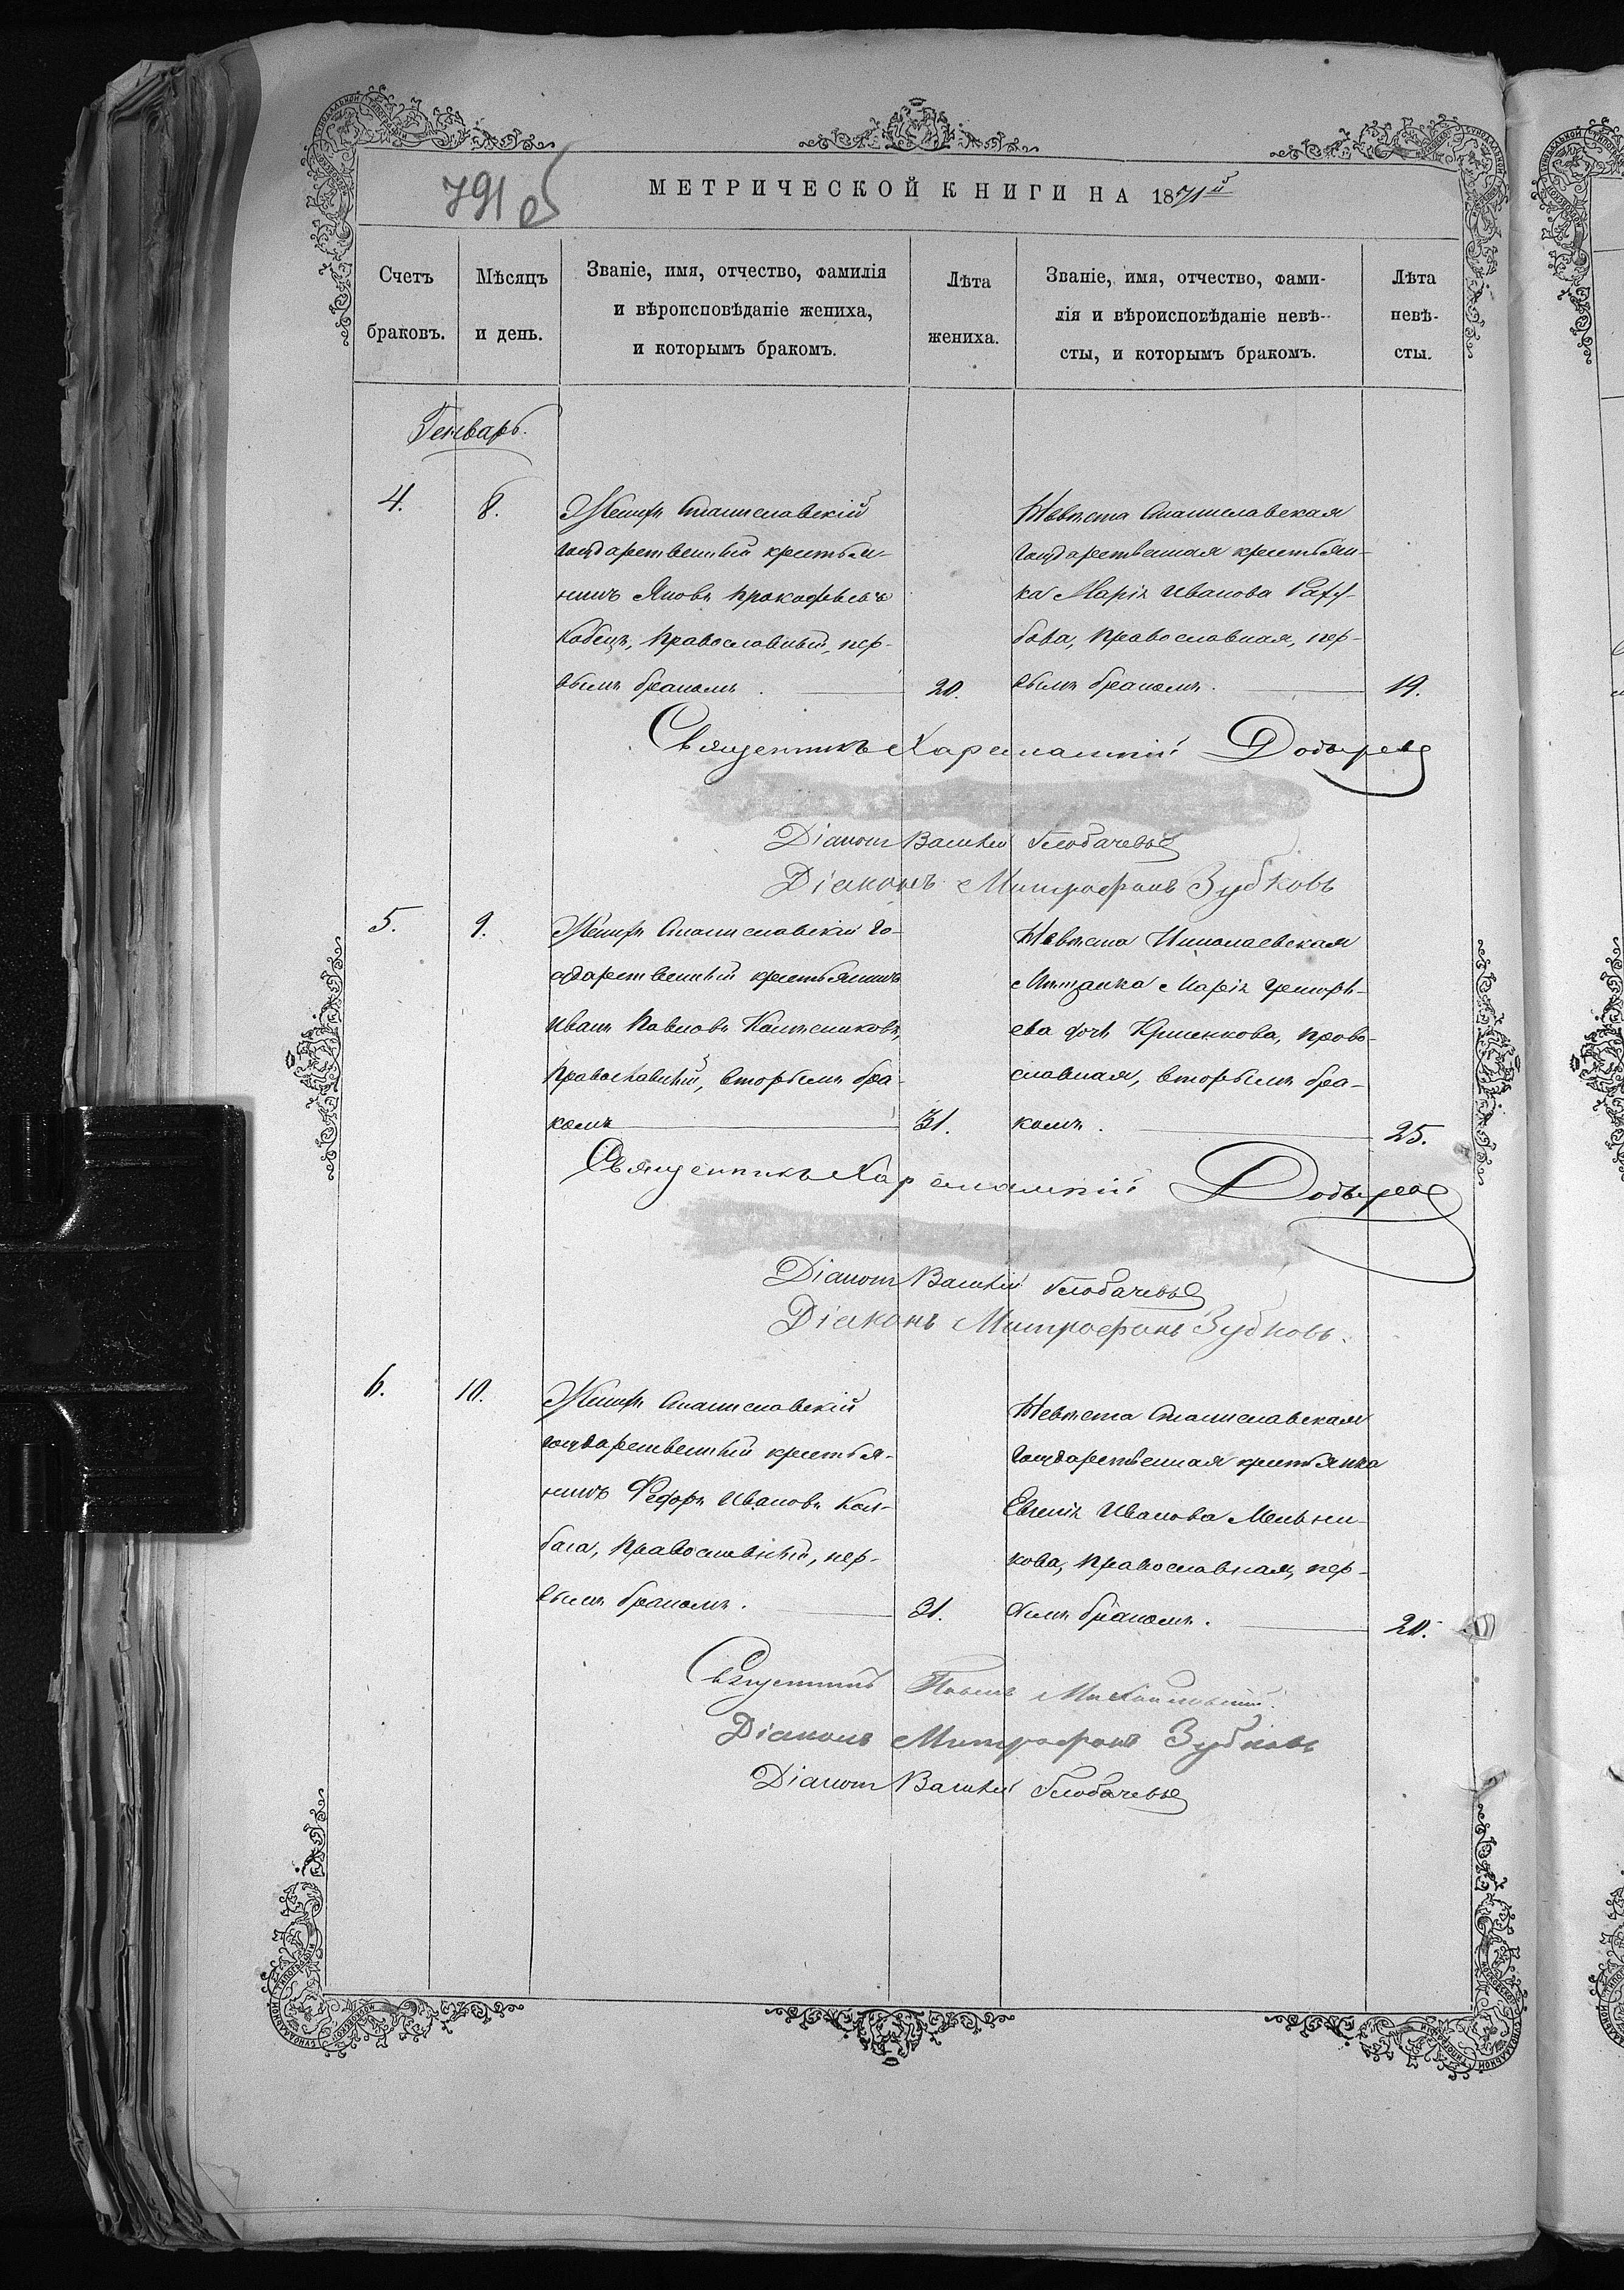 791 об
МЕТРИЧЕСКОЙ КНИГИ НА 1871й
Счетъ браковъ.
Мѣсяцъ и день.
Званіе, имя, отчество, фамилія
и вѣроисповѣданіе жениха,
и которымъ бракомъ.
Лѣта жениха.
Званіе, имя, отчество, фами-
лія и вѣроисповѣданіе невѣ-
сты, и которымъ бракомъ.
Лѣта невѣ-
сты.
Генварь.
4.
8.
Женихъ Станиславскій
государственный крестья-
нинъ Яковъ Прокофьевъ
Кобецъ, православный, пер-
вымъ бракомъ.
20.
Невѣста Станиславская
государственная крестьян-
ка Марія Иванова
бова, православная, пер-
вымъ бракомъ.
19.
Священникъ Харлампій
Діаконъ Василій Глобачевъ
Діаконъ Митрофанъ Зубковъ
5.
9.
Женихъ Станиславскій го-
сударственный крестьянинъ
Иванъ Павловъ Колесниковъ,
православный, вторымъ бра-
комъ
31.
Невѣста Николаевская
мѣщанка Марія Григорь-
ева дочь Крисенкова, право-
славная, вторымъ бра-
комъ.
25.
Священникъ Харлампій
Діаконъ Василій Глобачевъ
Діаконъ Митрофанъ Зубковъ.
6.
10.
Женихъ Станиславскій
государственный крестья-
нинъ Федоръ Ивановъ Кол-
баса, православный, пер-
вымъ бракомъ.
31.
Невѣста Станиславская
государственная крестьянка
Евгенія Иванова Мельни-
кова, православная, пер-
вымъ бракомъ.
20.
Священникъ Павелъ
Діаконъ Митрофанъ Зубковъ
Діаконъ Василій Глобачевъ